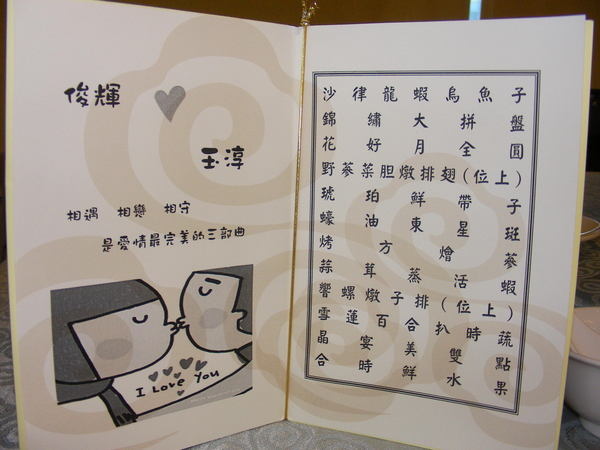 俊輝
玉淳
相遇 相戀 相守
是愛情最完美的三部曲
I Love You
沙律龍蝦烏魚子
錦繡大拼盤
花好月全圓
野蔘菜胆燉排翅(位上)
琥珀鮮帶子
蠔油東星斑
烤方燴蔘
蒜茸蒸活蝦
響螺燉子排(位上)
雪蓮百合扒時蔬
晶宴美雙點
合時鮮水果